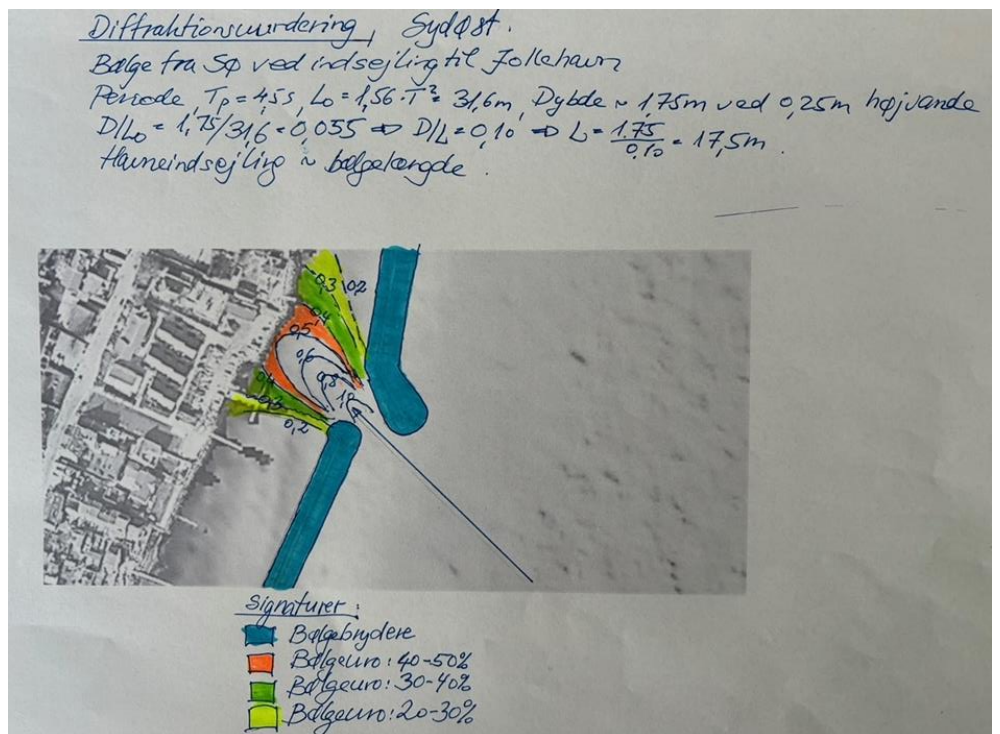 Diffraktionsvurdering, Sydøst.
Bølge fra SØ ved indsejling til Jollehavn
Periode, Tp = 4,5s, Lo = 1,56·T² = 31,6m, Dybde ~ 1,75m ved 0,25m højvande
D/Lo = 1,75/31,6 = 0,055 ⇒ D/L = 0,10 ⇒ L = 1.75/0,10 = 17,5m.
Havneindsejling ~ bølgelængde.
0,3 0,2
0,4
0,5
0,6
0,8
1,0
0,4
0,3
0,2
Signaturer:
Bølgebrydere
Bølgeuro: 40-50%
Bølgeuro: 30-40%
Bølgeuro: 20-30%